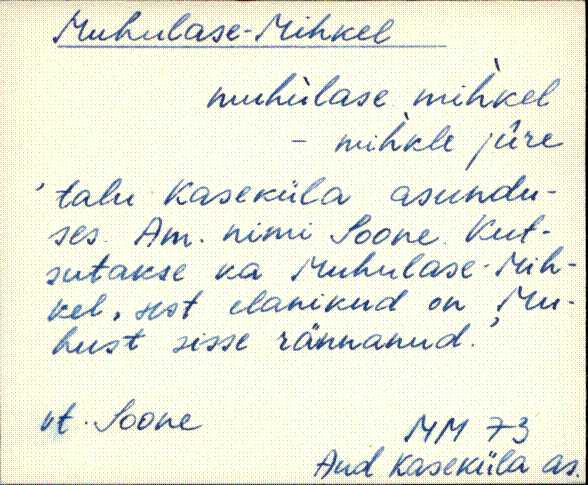 Muhulase-Mihkel
muhùlase mih̀kel
- mih̀kle jûre
'talu Kaseküla asundu-
ses. Am. nimi Soone. Kut-
sutakse ka Muhulase-Mih-
kel, sest elanikud on Mu-
hust sisse rännanud.'
vt. Soone
MM 73
Aud Kaseküla as.